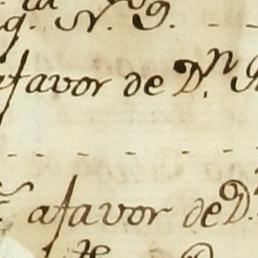 q. N. 9.
afavor de D.n
afavor de D.